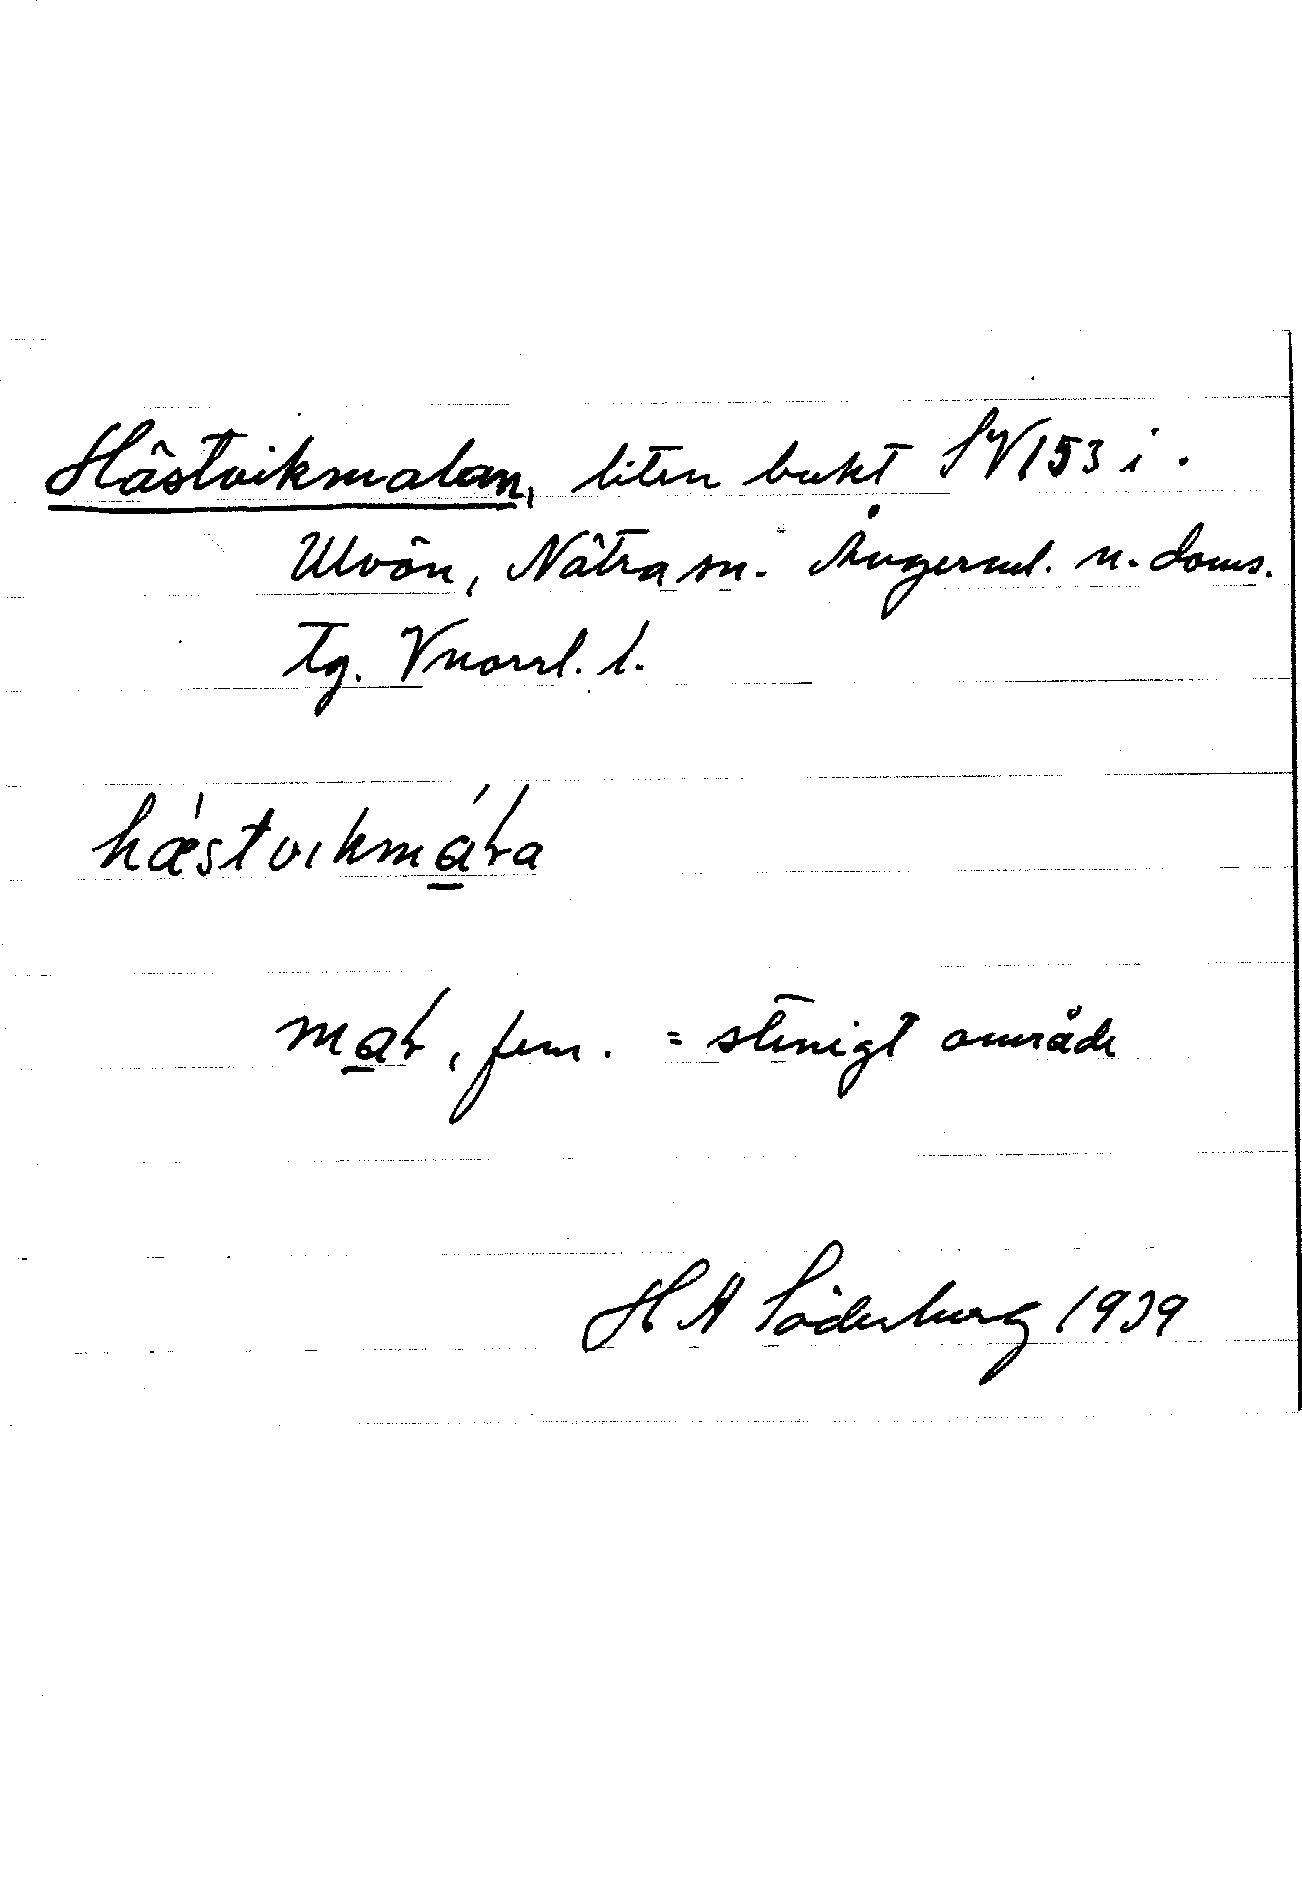 Hästvikmalan, liten bukt SV 153 i.
Ulvön, Nätra sn. Ångerml. n. doms.
tg. Vnorrl. l.
hǽstvıkmáɫa
maɫ, fem. = stenigt område
H A Söderberg 1939